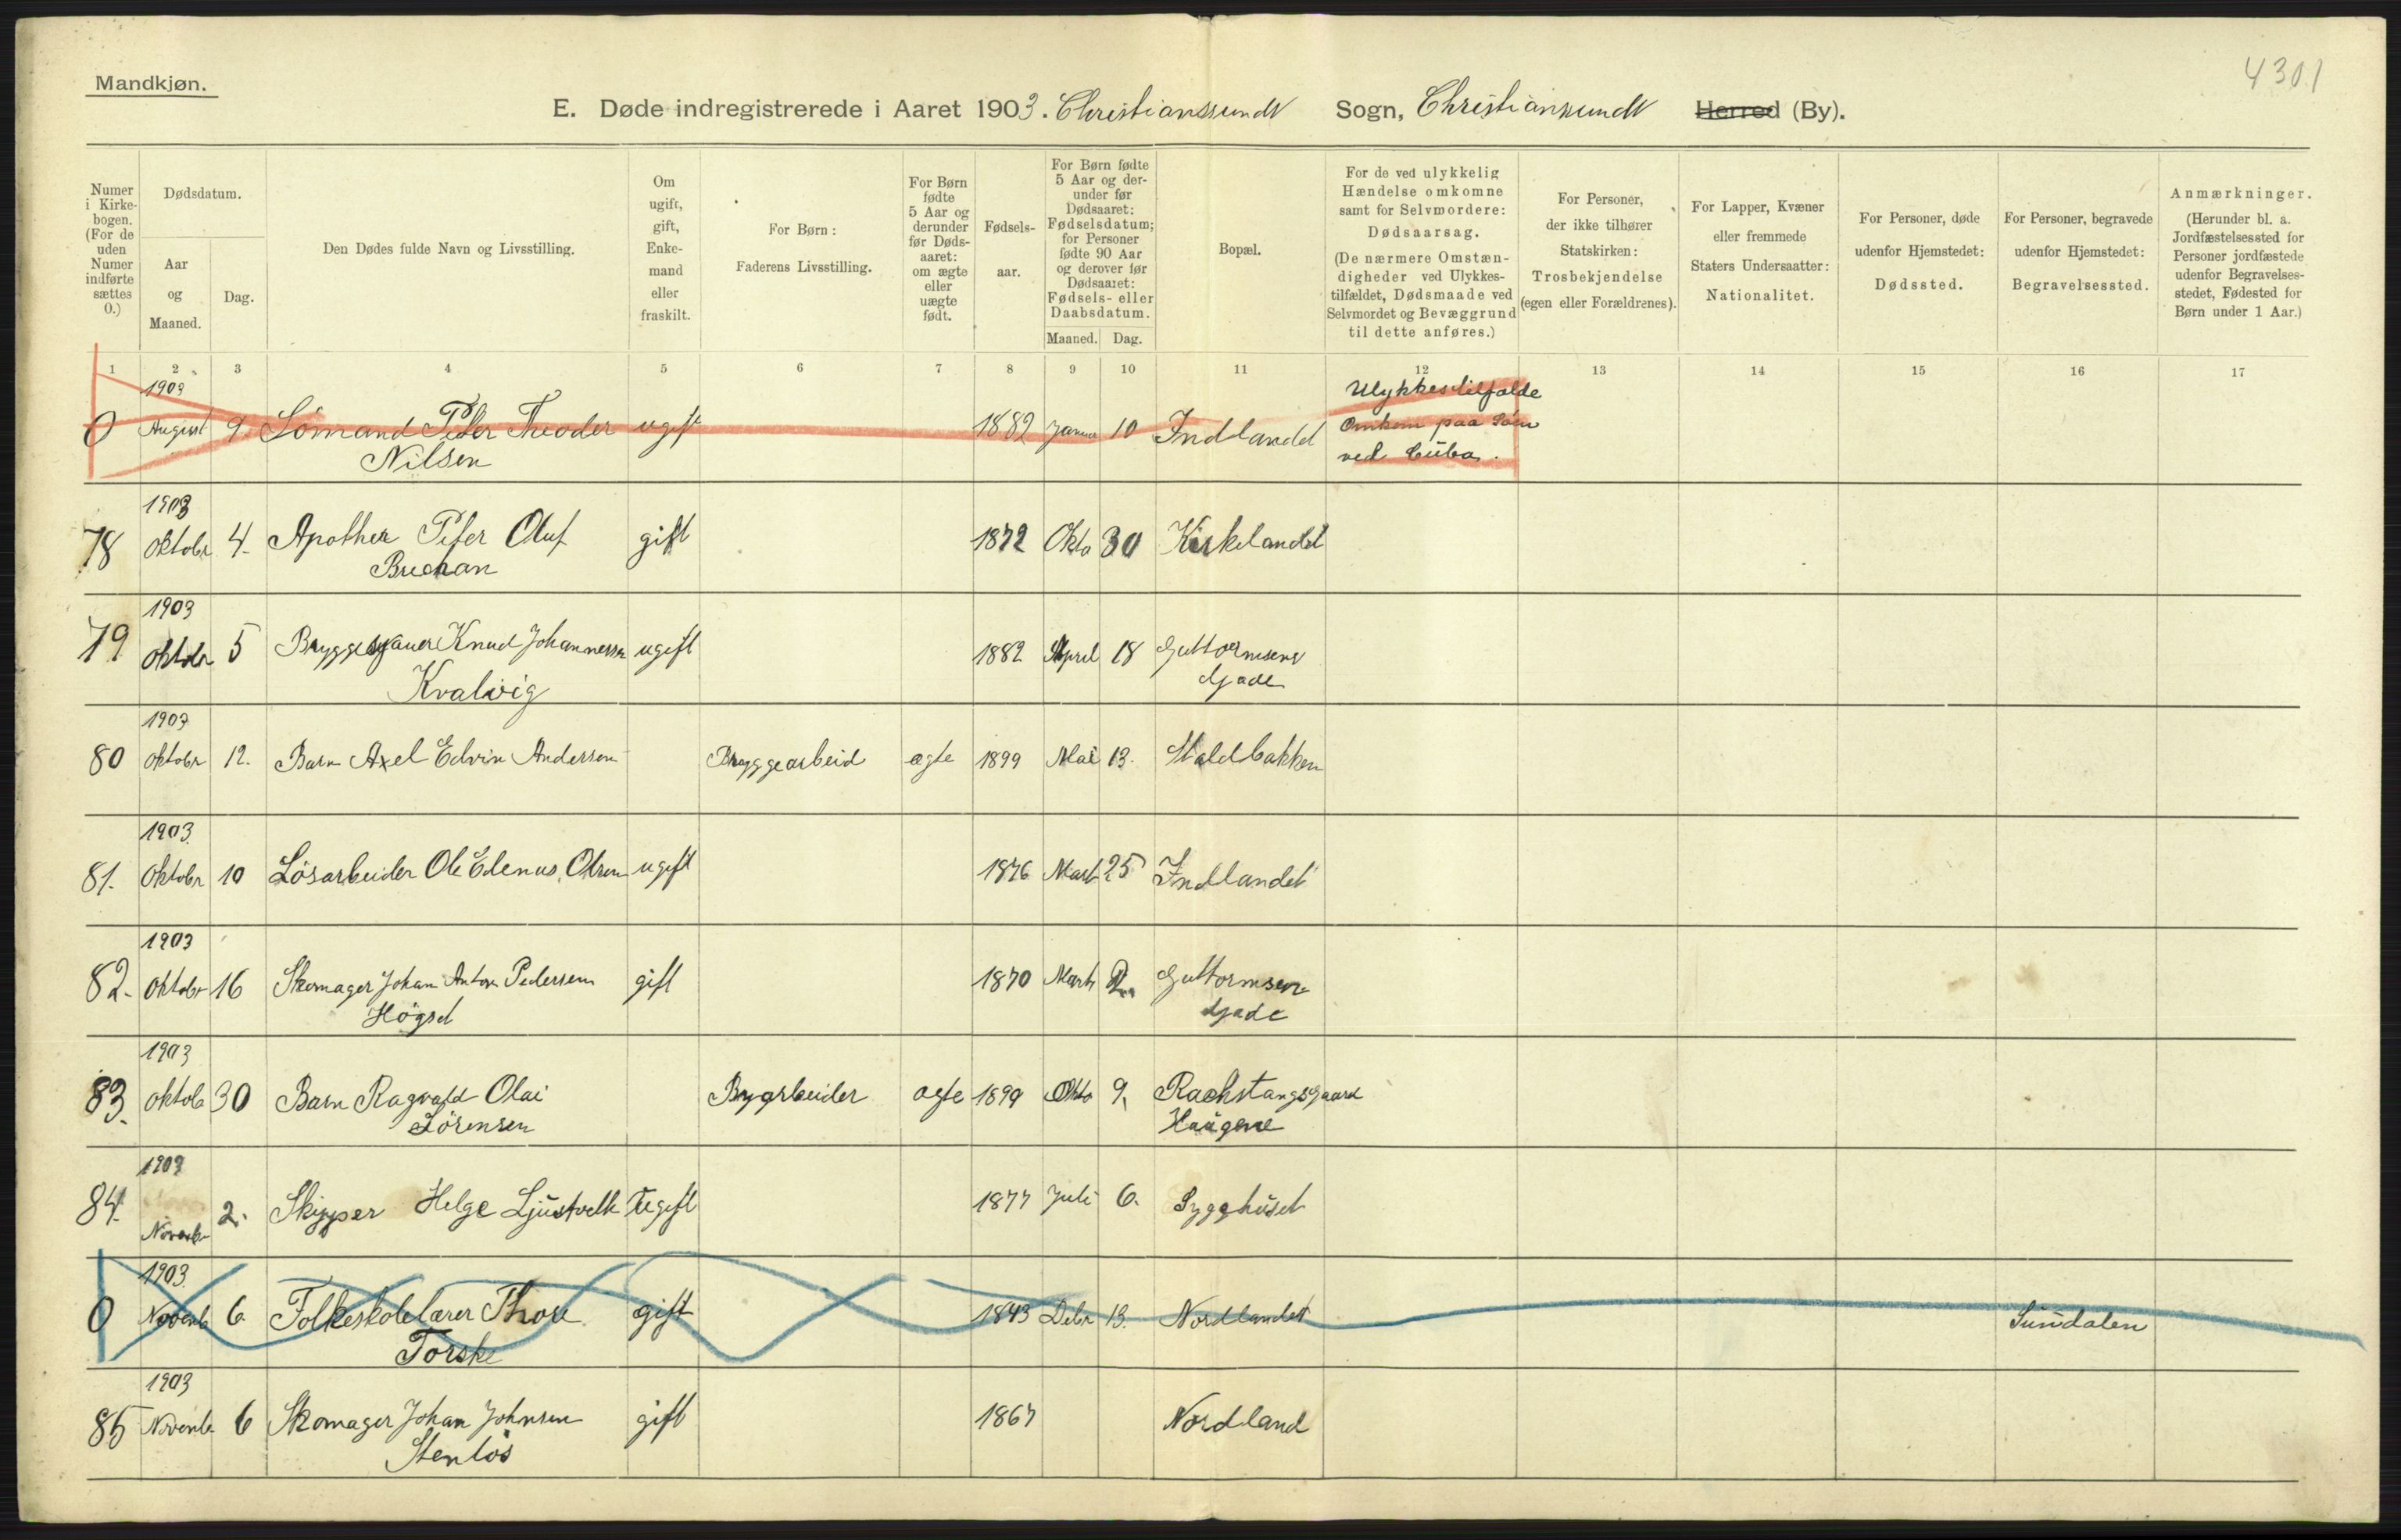 Mandkjøn.
4301
E. Døde indregistrerede i Aaret 1903. Christianssundt Sogn, Christianssundt Herred (By).
Numer i Kirke-bogen. (For de uden Numer indførte sættes 0.)
Dødsdatum.
Aar og Maaned.
Dag.
Den Dødes fulde Navn og Livsstilling.
Om ugift, gift, Enke-mand eller fraskilt.
For Børn:
Faderens Livsstilling.
For Børn fødte 5 Aar og derunder før Døds-aaret: om ægte eller uægte født.
Fødsels-aar.
For Børn fødte 5 Aar og der-under før Dødsaaret: Fødselsdatum; for Personer fødte 90 Aar og derover før Dødsaaret: Fødsels- eller Daabsdatum.
Maaned. Dag.
Bopæl.
For de ved ulykkelig Hændelse omkomne samt for Selvmordere: Dødsaarsag.
(De nærmere Omstæn-digheder ved Ulykkes-tilfældet, Dødsmaade ved Selvmordet og Bevæggrund til dette anføres.)
For Personer, der ikke tilhører Statskirken: Trosbekjendelse (egen eller Forældrenes).
For Lapper, Kvæner eller fremmede Staters Undersaatter: Nationalitet.
For Personer, døde udenfor Hjemstedet: Dødssted.
For Personer, begravede udenfor Hjemstedet: Begravelsessted.
Anmærkninger.
(Herunder bl. a. Jordfæstelsessted for Personer jordfæstede udenfor Begravelses-stedet, Fødested for Børn under 1 Aar.)
1 2 3 4 5 6 7 8 9 10 11 12 13 14 15 16 17
1903
0 August 9. Sömand Peter Theoder ugift 1882 Januar 10 Indlandet Ulykkestilfælde
Nilsen Omkom paa Söen
ved Cuba.
1903
78 Oktobr 4. Apother Peter Oluf gift 1872 Okto 30 Kirkelandet
Buchan
1903
79 Oktobr 5 Bryggeskauer Knud Johannessen ugift 1882 April 18 Guttormsens
Kvalvig Gade
1903
80 Oktobr 12. Barn Axel Edvin Andersen Bryggearbeid ægte 1899 Mai 13. Staldbakken
1903
81. Oktobr 10 Lösarbeider Ole Edenus Olsen ugift 1876 Mart 25 Indlandet
1903
82. Oktobr 16 Skomager Johan Anton Pedersen gift 1870 Marts 2. Guttormsens
Högset Gade
1903
83. Oktob 30 Barn Ragvald Olai ægte 1899 Okto 9. Rachstangsgaard
Sörensen Haugene
1903
84. Novembr 2. Skipper Helge Ugift 1877 Juli 6. Sygehuset
1903
0 Novemb 6. Folkeskolelærer Thore gift 1843 Debr 13. Nordlandet Sundalen
Torske
1903
85 Novemb 6 Skomager Johan Johnsen gift 1867 Nordland
Stenlös